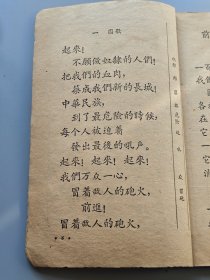 一 国歌
起來!
不願做奴隸的人們!
把我們的血肉,
築成我們新的長城!
中華民族,
到了最危險的時候,
每个人被迫着
發出最後的吼声。
起來!起來!起來!
我們万众一心,
冒着敌人的砲火,
前進!
冒着敌人的砲火,